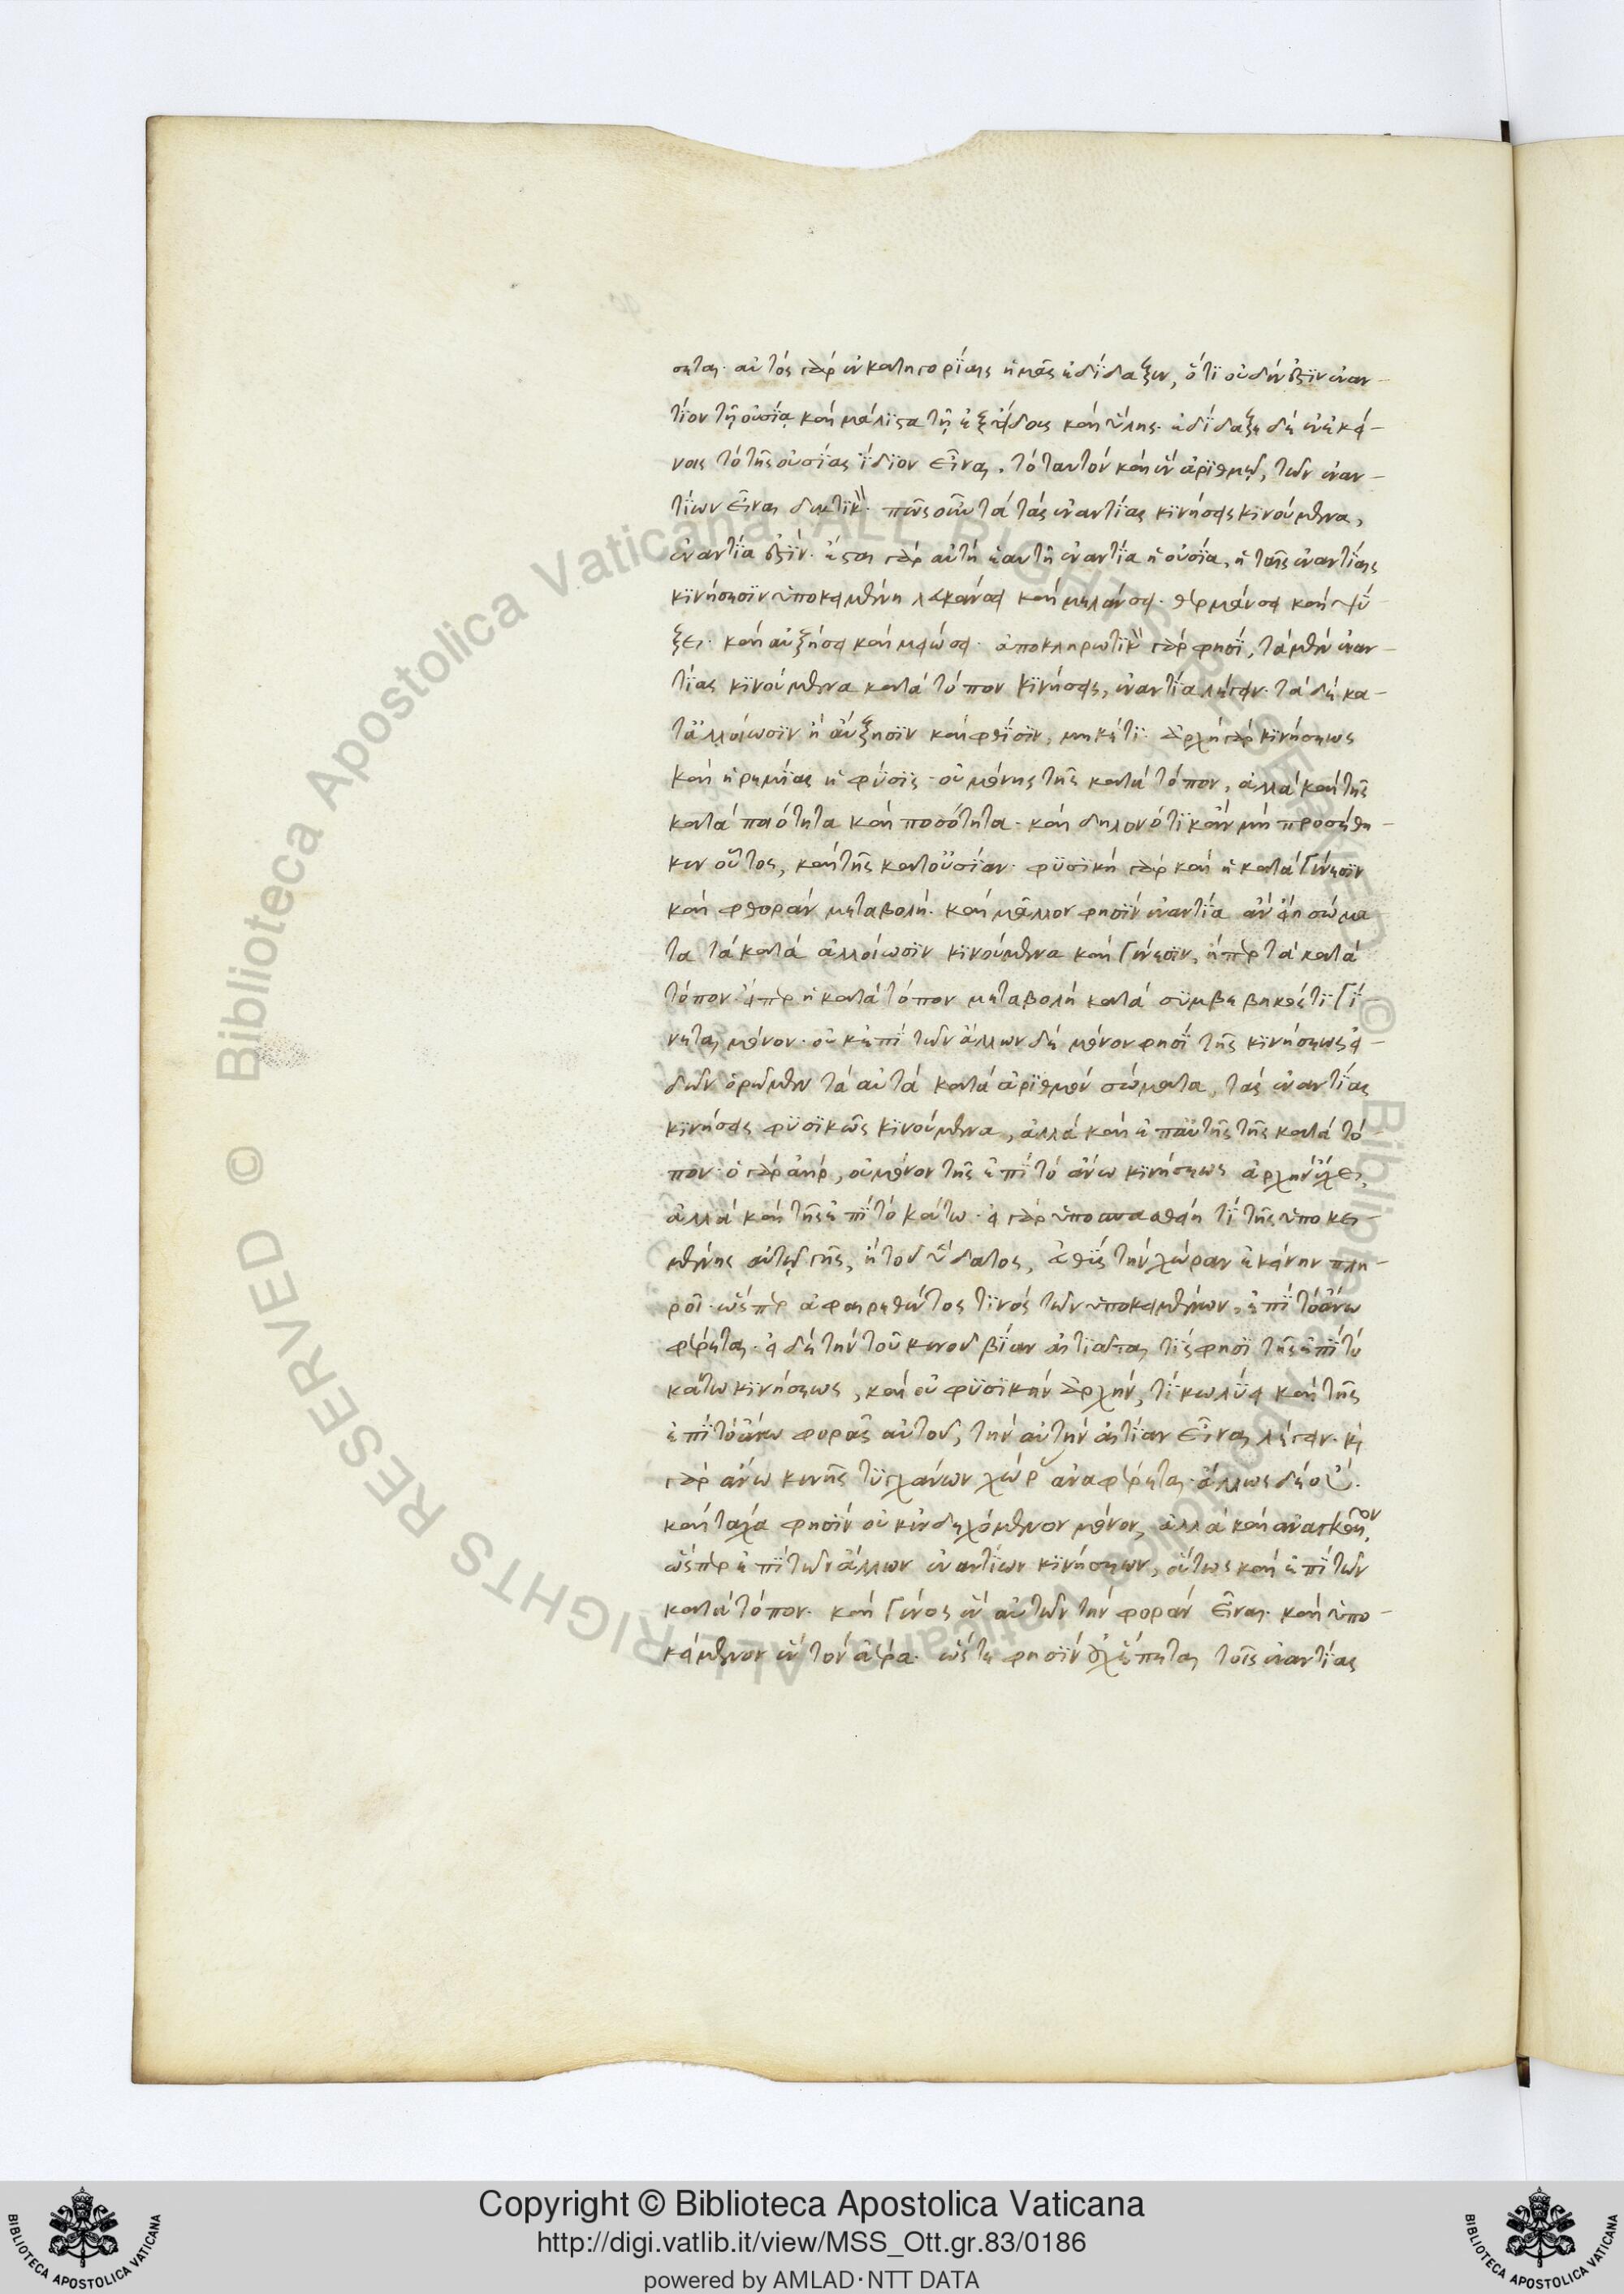 σηται. αὐτὸς γὰρ ἐν κατηγορίαις ἡμᾶς ἐδίδαξεν, ὅτι οὐδέν ἐστιν ἐναν-
τίον τῇ οὐσίᾳ καὶ μάλιστα τῇ ἐξ εἴδους καὶ ὕλης. ἐδίδαξε δὲ ἐν ἐκεί-
νοις τὸ τῆς οὐσίας ἴδιον εἶναι, τὸ ταυτὸν καὶ ἓν ἀριθμῷ, τῶν ἐναν-
τίων εἶναι δεκτικὸν. πῶς οὖν τὰ τὰς ἐναντίας κινήσεις κινούμενα,
ἐναντία ἐστίν. ἔσται γὰρ αὐτὴ ἑαυτῇ ἐναντία ἡ οὐσία, ἡ ταῖς ἐναντίαις
κινήσεσιν ὑποκειμένη λευκάνσει καὶ μελάνσει. θερμάνσει καὶ ψύ-
ξει. καὶ αὐξήσει καὶ μειώσει. ἀποκληρωτικὸν γάρ φησί, τὰ μὲν ἐναν-
τίας κινούμενα κατὰ τόπον κινήσεις, ἐναντία λέγειν. τὰ δὲ κα-
τ' ἀλλοίωσιν ἢ αὔξησιν καὶ φθίσιν, μηκέτι. ἀρχὴ γὰρ κινήσεως
καὶ ἠρεμίας ἡ φύσις. οὐ μόνης τῆς κατὰ τόπον, ἀλλὰ καὶ τῆς
κατὰ ποιότητα καὶ ποσότητα. καὶ δηλονότι κἂν μὴ προσέθη-
κεν οὗτος, καὶ τῆς κατ' οὐσίαν. φυσικὴ γὰρ καὶ ἡ κατὰ γένεσιν
καὶ φθορὰν μεταβολή. καὶ μᾶλλον φησὶν ἐναντία ἂν εἴη σώμα
τα τὰ κατὰ ἀλλοίωσιν κινούμενα καὶ γένεσιν, ἤπερ τὰ κατὰ
τόπον. εἴπερ ἡ κατὰ τόπον μεταβολὴ κατὰ συμβεβηκός τι γί-
νεται μόνον. οὐκ ἐπὶ τῶν ἄλλων δὲ μόνον φησὶ τῆς κινήσεως εἰ-
δῶν ὁρῶμεν τὰ αὐτὰ κατὰ ἀριθμὸν σώματα, τὰς ἐναντίας
κινήσεις φυσικῶς κινούμενα, ἀλλὰ καὶ ἐπ' αὐτῆς τῆς κατὰ τό-
πον. ὁ γὰρ ἀὴρ, οὐ μόνον τῆς ἐπὶ τὸ ἄνω κινήσεως ἀρχὴν ἔχει,
ἀλλὰ καὶ τῆς ἐπὶ τὸ κάτω. εἰ γὰρ ὑποσπασθείη τι τῆς ὑποκει-
μένης αὐτῷ γῆς, ἢ τοῦ ὕδατος, εὐθὺς τὴν χώραν ἐκείνην πλη-
ροῖ. ὥσπερ ἀφαιρεθέντος τινὸς τῶν ὑπερκειμένων, ἐπὶ τὸ ἄνω
φέρεται. εἰ δὲ τὴν τοῦ κενοῦ βίαν αἰτιᾶται τίς φησι τῆς ἐπὶ τὸ
κάτω κινήσεως, καὶ οὐ φυσικὴν ἀρχὴν, τί κωλύει καὶ τῆς
ἐπὶ τὸ ἄνω φορᾶς αὐτοῦ, τὴν αὐτὴν αἰτίαν εἶναι λέγειν. κε
γὰρ ἄνω κενῆς τυγχάνων χώρ ἀναφέρεται. ἄλλως δὲ οὔ.
καὶ τάχα φησὶν οὐκ ἐνδεχόμενον μόνον, ἀλλὰ καὶ ἀναγκαῖον,
ὥσπερ ἐπὶ τῶν ἄλλων ἐναντίων κινήσεων, οὕτως καὶ ἐπὶ τῶν
κατὰ τόπον. καὶ γένος ἓν αὐτῶν τὴν φορὰν εἶναι. καὶ ὑπο-
κείμενον ἓν τὸν ἀέρα. ὥστε φησὶν οὐχ ἕπεται τοῖς ἐναντίας
Copyright © Biblioteca Apostolica Vaticana
http://digi.vatlib.it/view/MSS_Ott.gr.83/0186
powered by AMLAD·NTT DATA